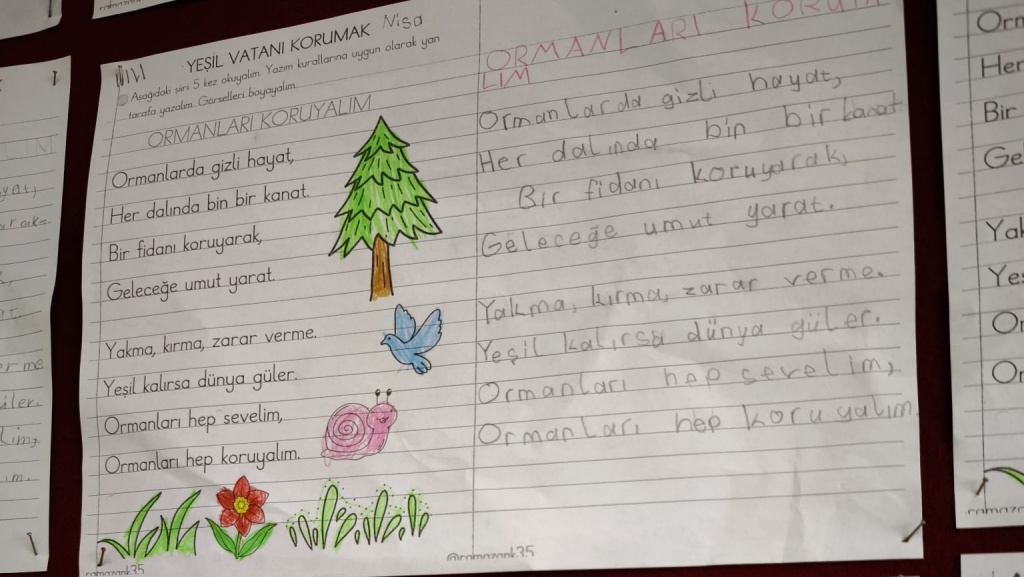 YEŞİL VATANI KORUMAK Nisa
Aşağıdaki şiiri 5 kez okuyalım. Yazım kurallarına uygun olarak yan
tarafa yazalım. Görselleri boyayalım.
ORMANLARI KORUYALIM
Ormanlarda gizli hayat,
Her dalında bin bir kanat.
Bir fidanı koruyarak,
Geleceğe umut yarat.
Yakma, kırma, zarar verme.
Yeşil kalırsa dünya güler.
Ormanları hep sevelim,
Ormanları hep koruyalım.
ramazank35
@ramazank35
ORMANLARI KORU
LIM
Ormanlarda gizli hayat,
Her dalında bin bir kanat
Bir fidanı koruyarak,
Geleceğe umut yarat.
Yakma, kırma, zarar verme.
Yeşil kalırsa dünya güler.
Ormanları hep sevelim,
Ormanları hep koruyalım.
Her
Bir
Ge
Yak
Yes
Or
Or
ramazan